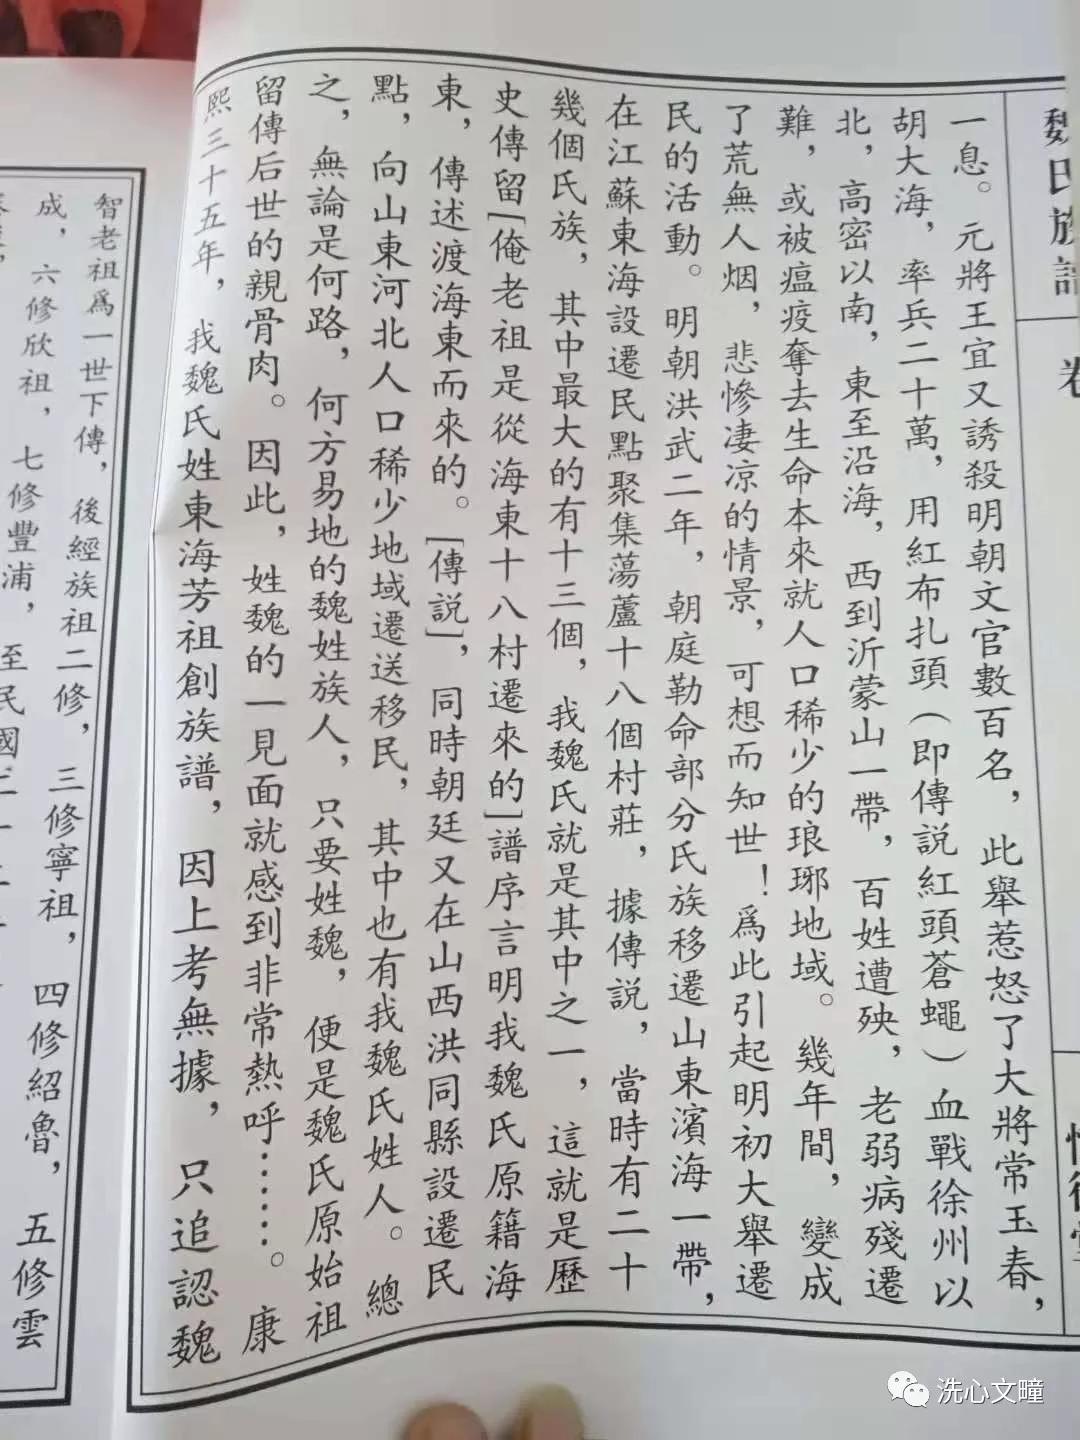 魏氏族譜
卷
一息。元將王宜又誘殺明朝文官數百名，此舉惹怒了大將常玉春，
胡大海，率兵二十萬，用紅布扎頭（即傳説紅頭蒼蠅）血戰徐州以
北，高密以南，東至沿海，西到沂蒙山一帶，百姓遭殃，老弱病殘遷
難，或被瘟疫奪去生命本來就人口稀少的琅琊地域。幾年間，變成
了荒無人烟，悲慘凄凉的情景，可想而知世！爲此引起明初大舉遷
民的活動。明朝洪武二年，朝庭勒命部分氏族移遷山東濱海一帶，
在江蘇東海設遷民點聚集蕩蘆十八個村莊，據傳説，當時有二十
幾個氏族，其中最大的有十三個，我魏氏就是其中之一，這就是歷
史傳留[俺老祖是從海東十八村遷來的]譜序言明我魏氏原籍海
東，傳述渡海東而來的。[傳説]，同時朝廷又在山西洪同縣設遷民
點，向山東河北人口稀少地域遷送移民，其中也有我魏氏姓人。總
之，無論是何路，何方易地的魏姓族人，只要姓魏，便是魏氏原始祖
留傳后世的親骨肉。因此，姓魏的一見面就感到非常熱呼……。康
熙三十五年，我魏氏姓東海芳祖創族譜，因上考無據，只追認魏
智老祖爲一世下傳，後經族祖二修，三修寧祖，四修紹魯，五修雲
成，六修欣祖，七修豐浦，至民國
洗心文曈